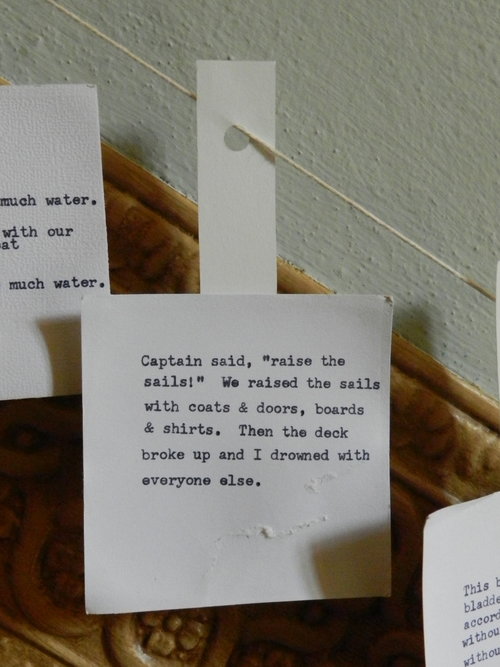 much water.
with our
much water.
Captain said, "raise the
sails!" We raised the sails
with coats & doors, boards
& shirts. Then the deck
broke up and I drowned with
everyone else.
This